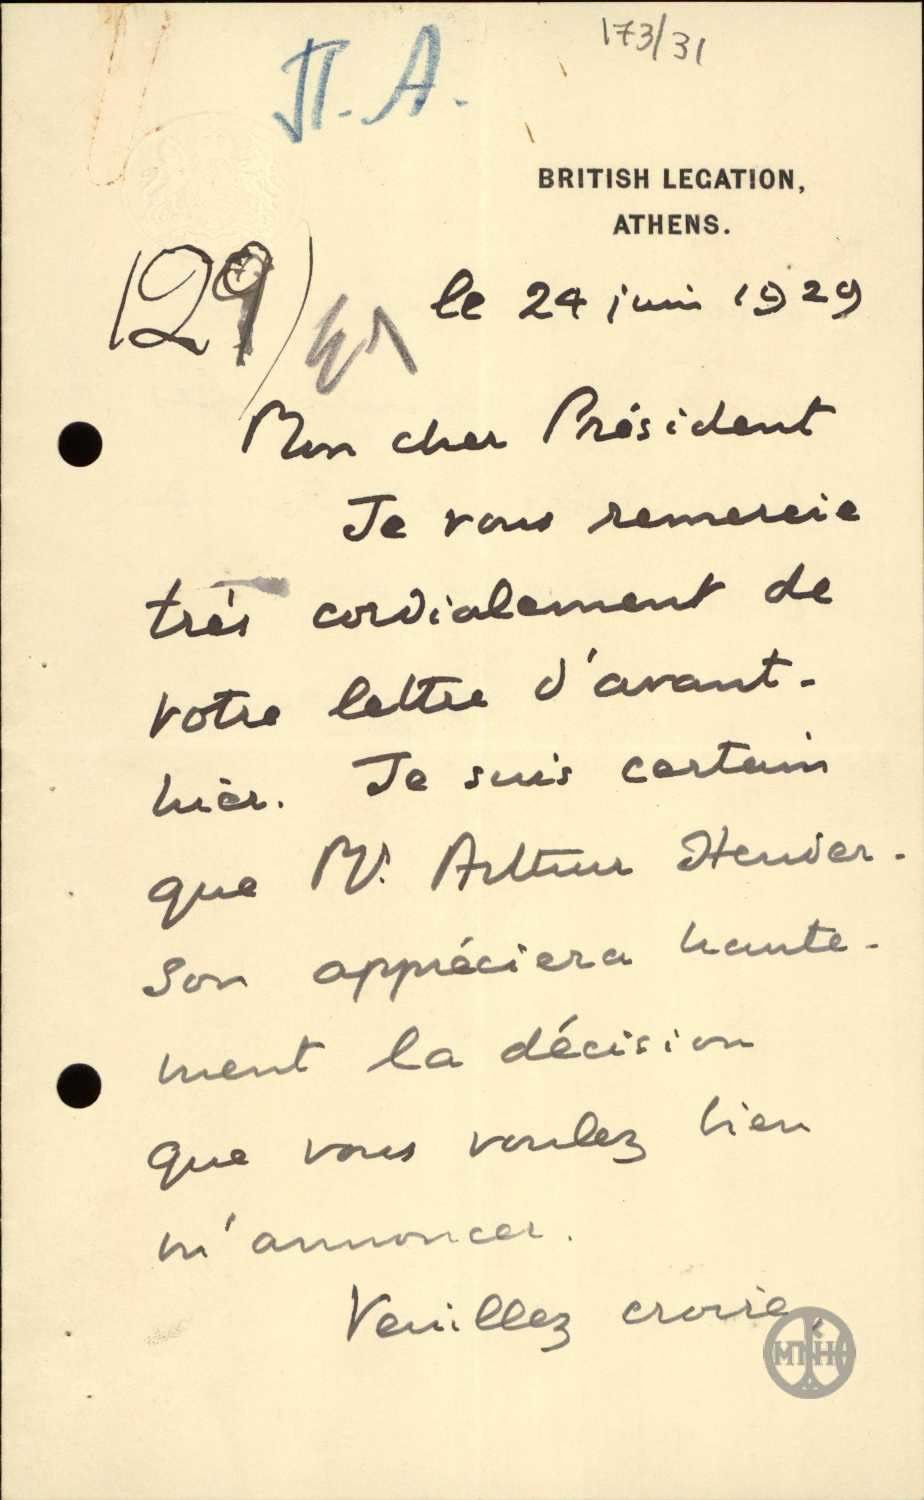 173/31
Π. Α.
BRITISH LEGATION,
ATHENS.
129)
le 24 juin 1929
Mon cher Président
Je vous remercie
très cordialement de
votre lettre d'avant-
hier. Je suis certain
que Mr. Arthur Hender-
son appréciera haute-
ment la décision
que vous voulez bien
m'annoncer.
Veuillez croire,